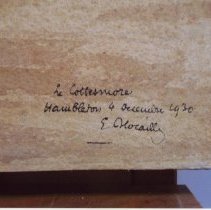 Le Cottesmore
Hambleton 4 Decembre 1930
E.